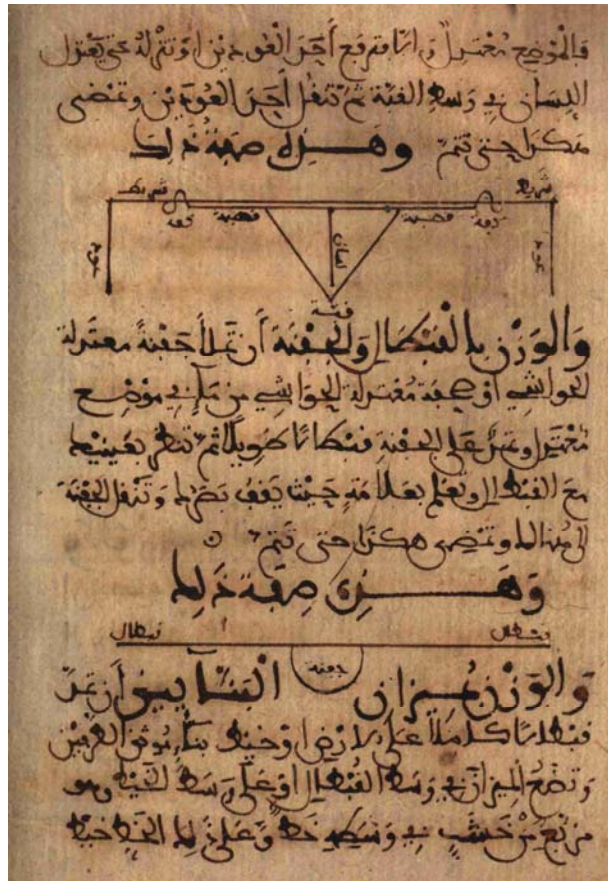 فالموضع معتدل وإنما ترفع أحد العودين أو تنزله حتى يعتدل
اللسان في وسط القبة ثم تنقل أحد العودين وتمضي
هكذا حتى تتم وهذه صفة ذلك
شريط شريط
قصبة قصبة
عود لسان عود
قبة
والوزن بالقبطال والجفنة أن تملأ جفنة معتدلة
الحواشي أو صحفة معتدلة الحواشي من ماء في موضع
معتدل وتمد على الجفنة قبطالا طويلا ثم تنظر بعينيك
مع القبطال وتعلم بعلامة حيث يقف بصرك وتنقل الجفنة
وتمضي هكذا حتى تتم
وهذه صفة ذلك
قبطال قبطال
جفنة
والوزن بميزان البنائين أن تمد
قبطالا كاملا على الأرض أو خيط بناء موثق الطرفين
وتضع الميزان في وسط القبطال أو على وسط الخيط وهو
مربع من خشب في وسطه خط وعلى الخط خيط